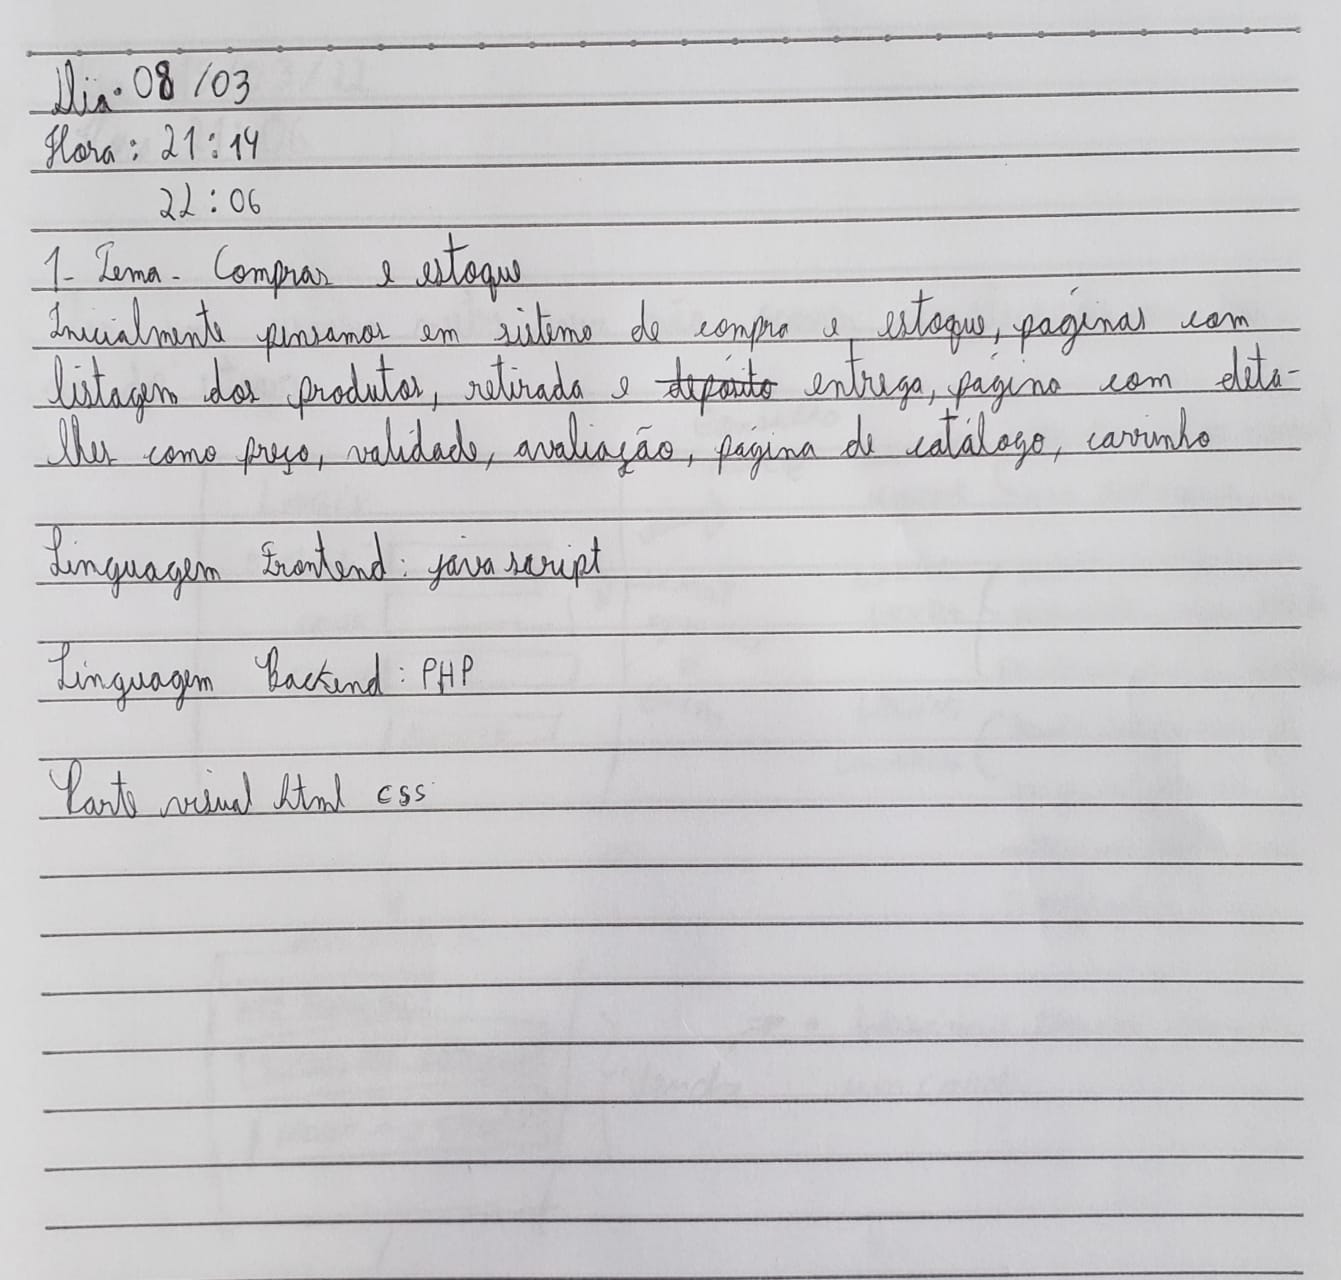 Dia: 08/03
Hora: 21:14
22:06
1- Tema - Compras e estoque
Inicialmente pensamos em sistema de compra e estoque, páginas com
listagem dos produtos, retirada e depósito entrega, página com deta-
lhes como preço, validade, avaliação, página de catálogo, carrinho
Linguagem Frontend: java script
Linguagem Backend: PHP
Parte visual html css